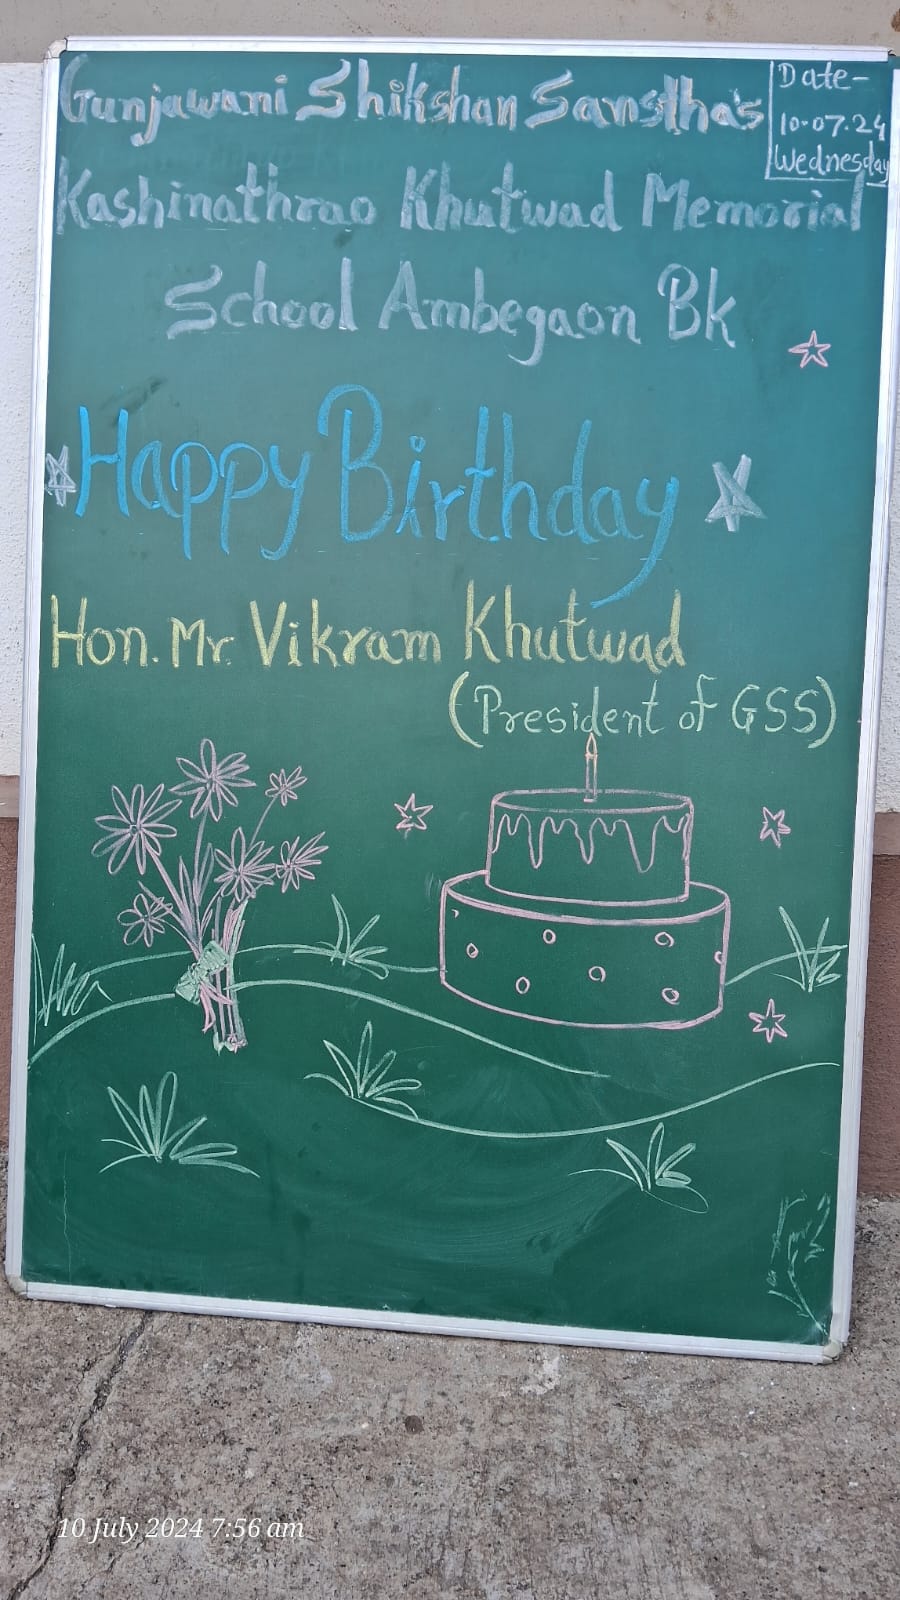 Gunjawani Shikshan Sanstha's
Date-
10.07.24
Wednesday
Kashinathrao Khutwad Memorial
School Ambegaon Bk
Happy Birthday
Hon. Mr. Vikram Khutwad
(President of GSS)
10 July 2024 7:56 am